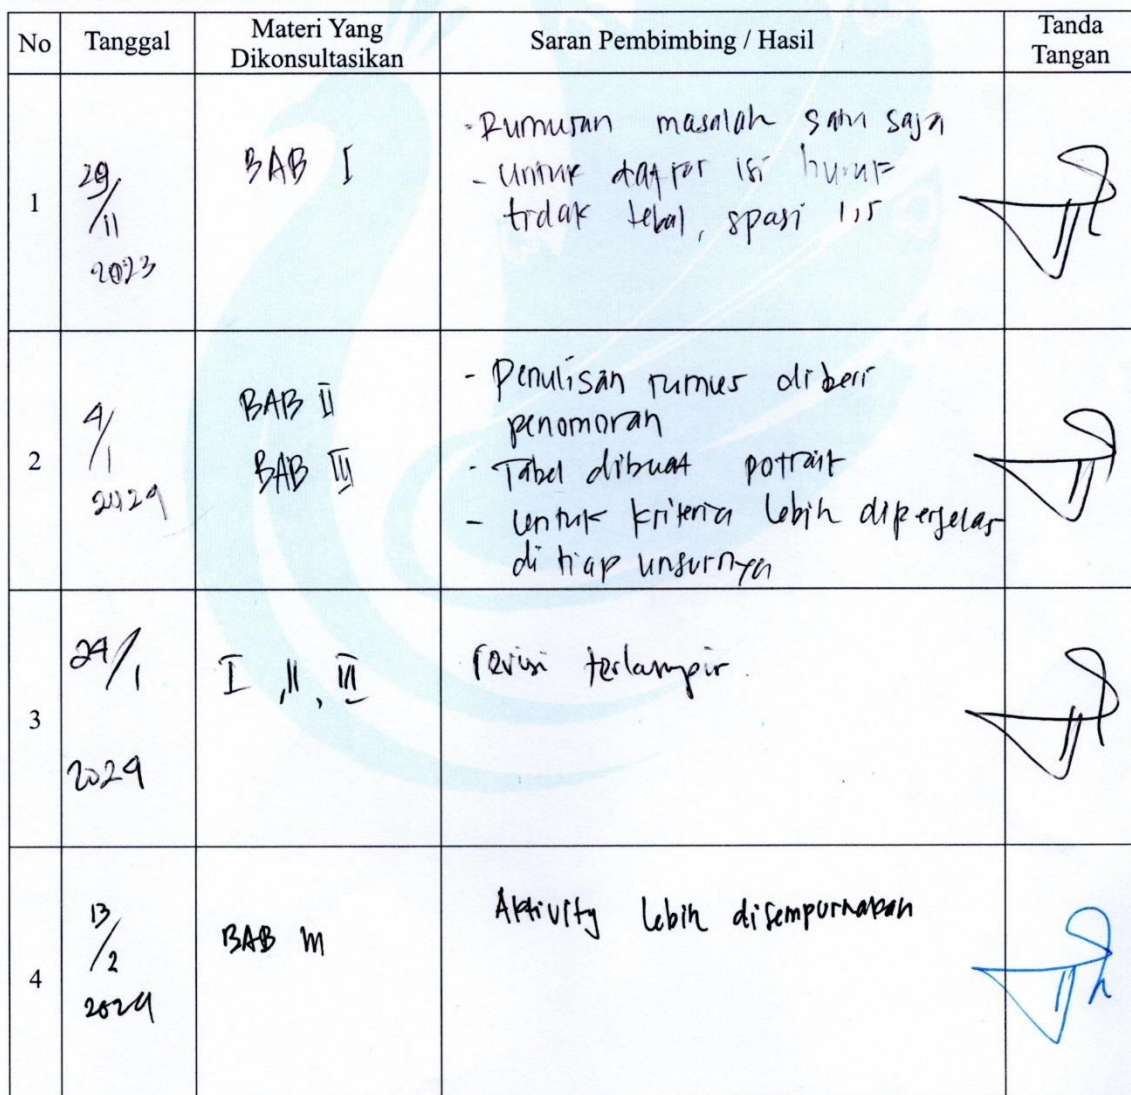 No Tanggal Materi Yang Dikonsultasikan Saran Pembimbing / Hasil Tanda Tangan
1
29/11
2023
BAB I
- Rumusan masalah satu saja
- untuk daftar isi huruf
tidak tebal, spasi 1,5
2
4/1
2024
BAB II
BAB III
- Penulisan rumus diberi
penomoran
- Tabel dibuat potrait
- untuk kriteria lebih diperjelas
di tiap unsurnya
3
24/1
2024
I, II, III
revisi terlampir.
4
13/2
2024
BAB III
Aktivity lebih disempurnakan